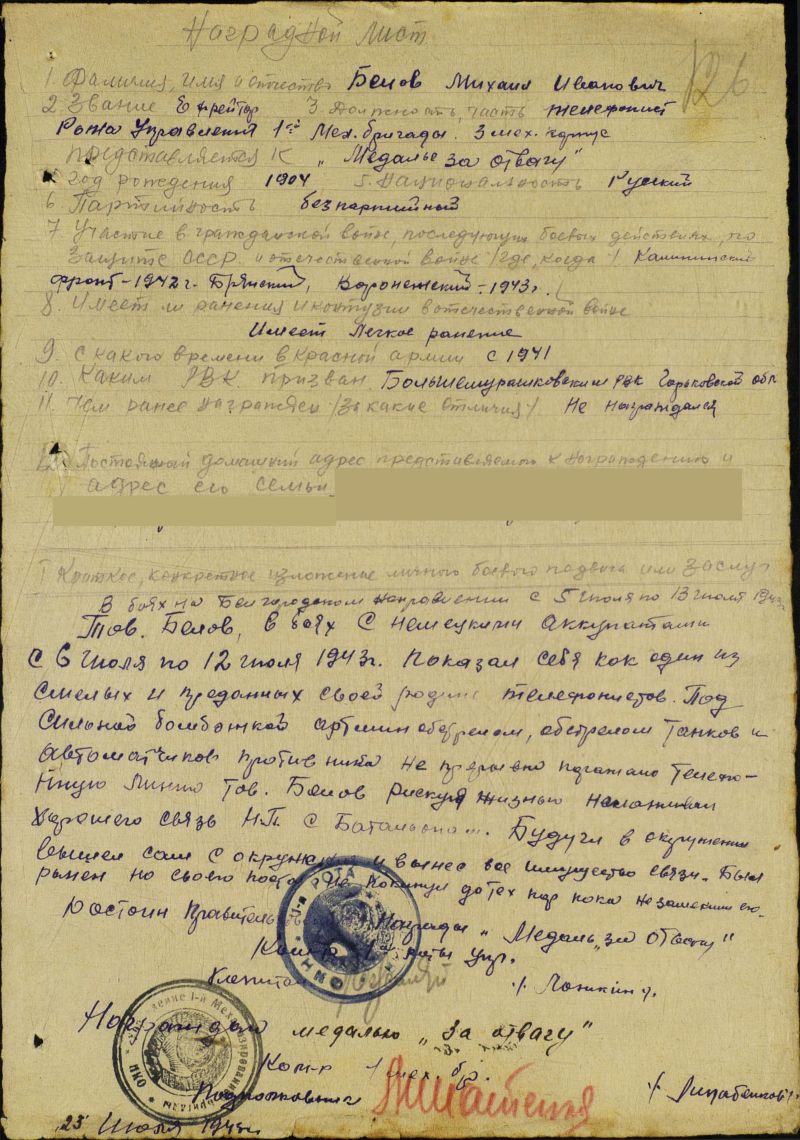 Наградной лист
126
1. Фамилия, имя и отчество Белов Михаил Иванович
2. Звание Ефрейтор 3. Должность, часть телефонист
Рота Управления 1ой Мех. бригады. 3 мех. корпус
Представляется к „Медалье за отвагу"
4 год рождения 1904 5. Национальность Русский
6 Партийность безпартийный
7 Участие в гражданской войне, последующих боевых действиях, по
Защите СССР и отечественной войне /где, когда/ Калининский
фронт-1942 г. Брянский, Воронежский-1943 г.
8. Имеет ли ранения и контузии в отечественной войне
Имеет легкое ранение
9. С какого времени в Красной армии с 1941
10. Каким РВК призван Большемурашковским РВК Горьковской обл
11. Чем ранее награжден /за какие отличия/ Не награждался
12. Постоянный домашний адрес представляемого к награждению и
адрес его семьи
I Краткое, конкретное изложение личного боевого подвига или заслуг
В боях на Белгородском направлении с 5 июля по 13 июля 1943
Тов. Белов, в боях с немецкими аккупатами
с 6 июля по 12 июля 1943 г. показал себя как один из
смелых и преданных своей родине телефонистов. Под
сильной бомбежкой артминобстрелом, обстрелом танков и
автоматчиков противника не прерывно
линию тов. Белов рискуя жизнью
хорошего связь Н.П. с Батальоном. Будучи в окружении
вышел сам с окружения и вынес все имущество связи. Был
ранен но своего поста не покинул до тех пор пока не заменили его.
Достоин Правитель Награды „Медаль „за отвагу"
Ком-р роты упр.
Капитан /Лонкин/.
РОТА
Награждаю медалью „За отвагу"
Ком-р 1 мех. бр.
Подполковник
25 Июля 1943 г.
НКО